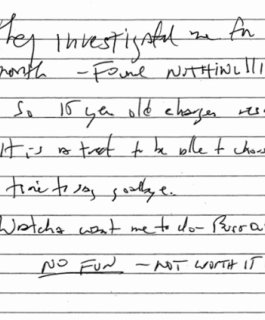 They investigated me for
month - Found NOTHING!!!
So 15 year old charges res
It is a treat to be able to choos
time to say goodbye.
Watcha want me to do - Burro
NO FUN - NOT WORTH IT